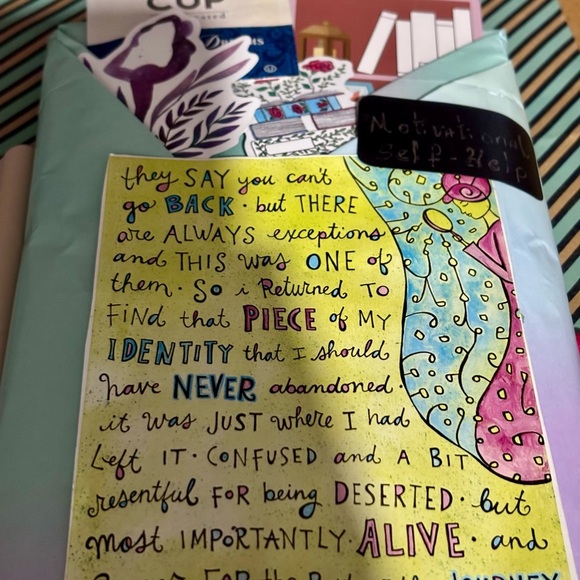 CUP
Motivational
Self-Help
they SAY you can't
go BACK. but THERE
are ALWAYS exceptions
and THIS was ONE of
them. So i Returned TO
FiNd that PIECE of MY
IDENTITY that I should
have NEVER abandoned.
it was JUST where I had
left IT. CONFUSED and A BIT
resentful FOR being DESERTED. but
most IMPORTANTLY ALIVE. and
FOR the JOURNEY